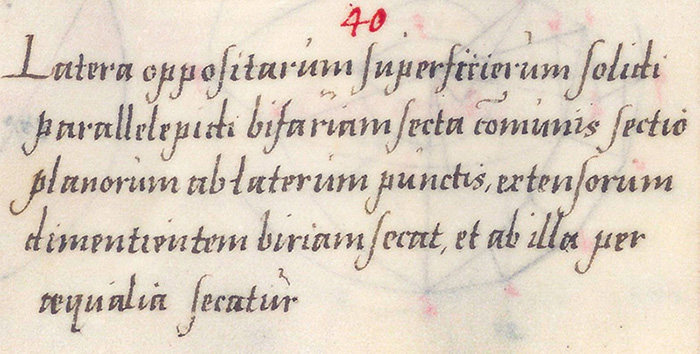 40
Latera oppositarum superficierum solidi
parallelepidi bifariam secta com̄unis sectio
planorum ab laterum punctis, extensorum
dimentientem biriam secat, et ab illa per
æqualia secatur